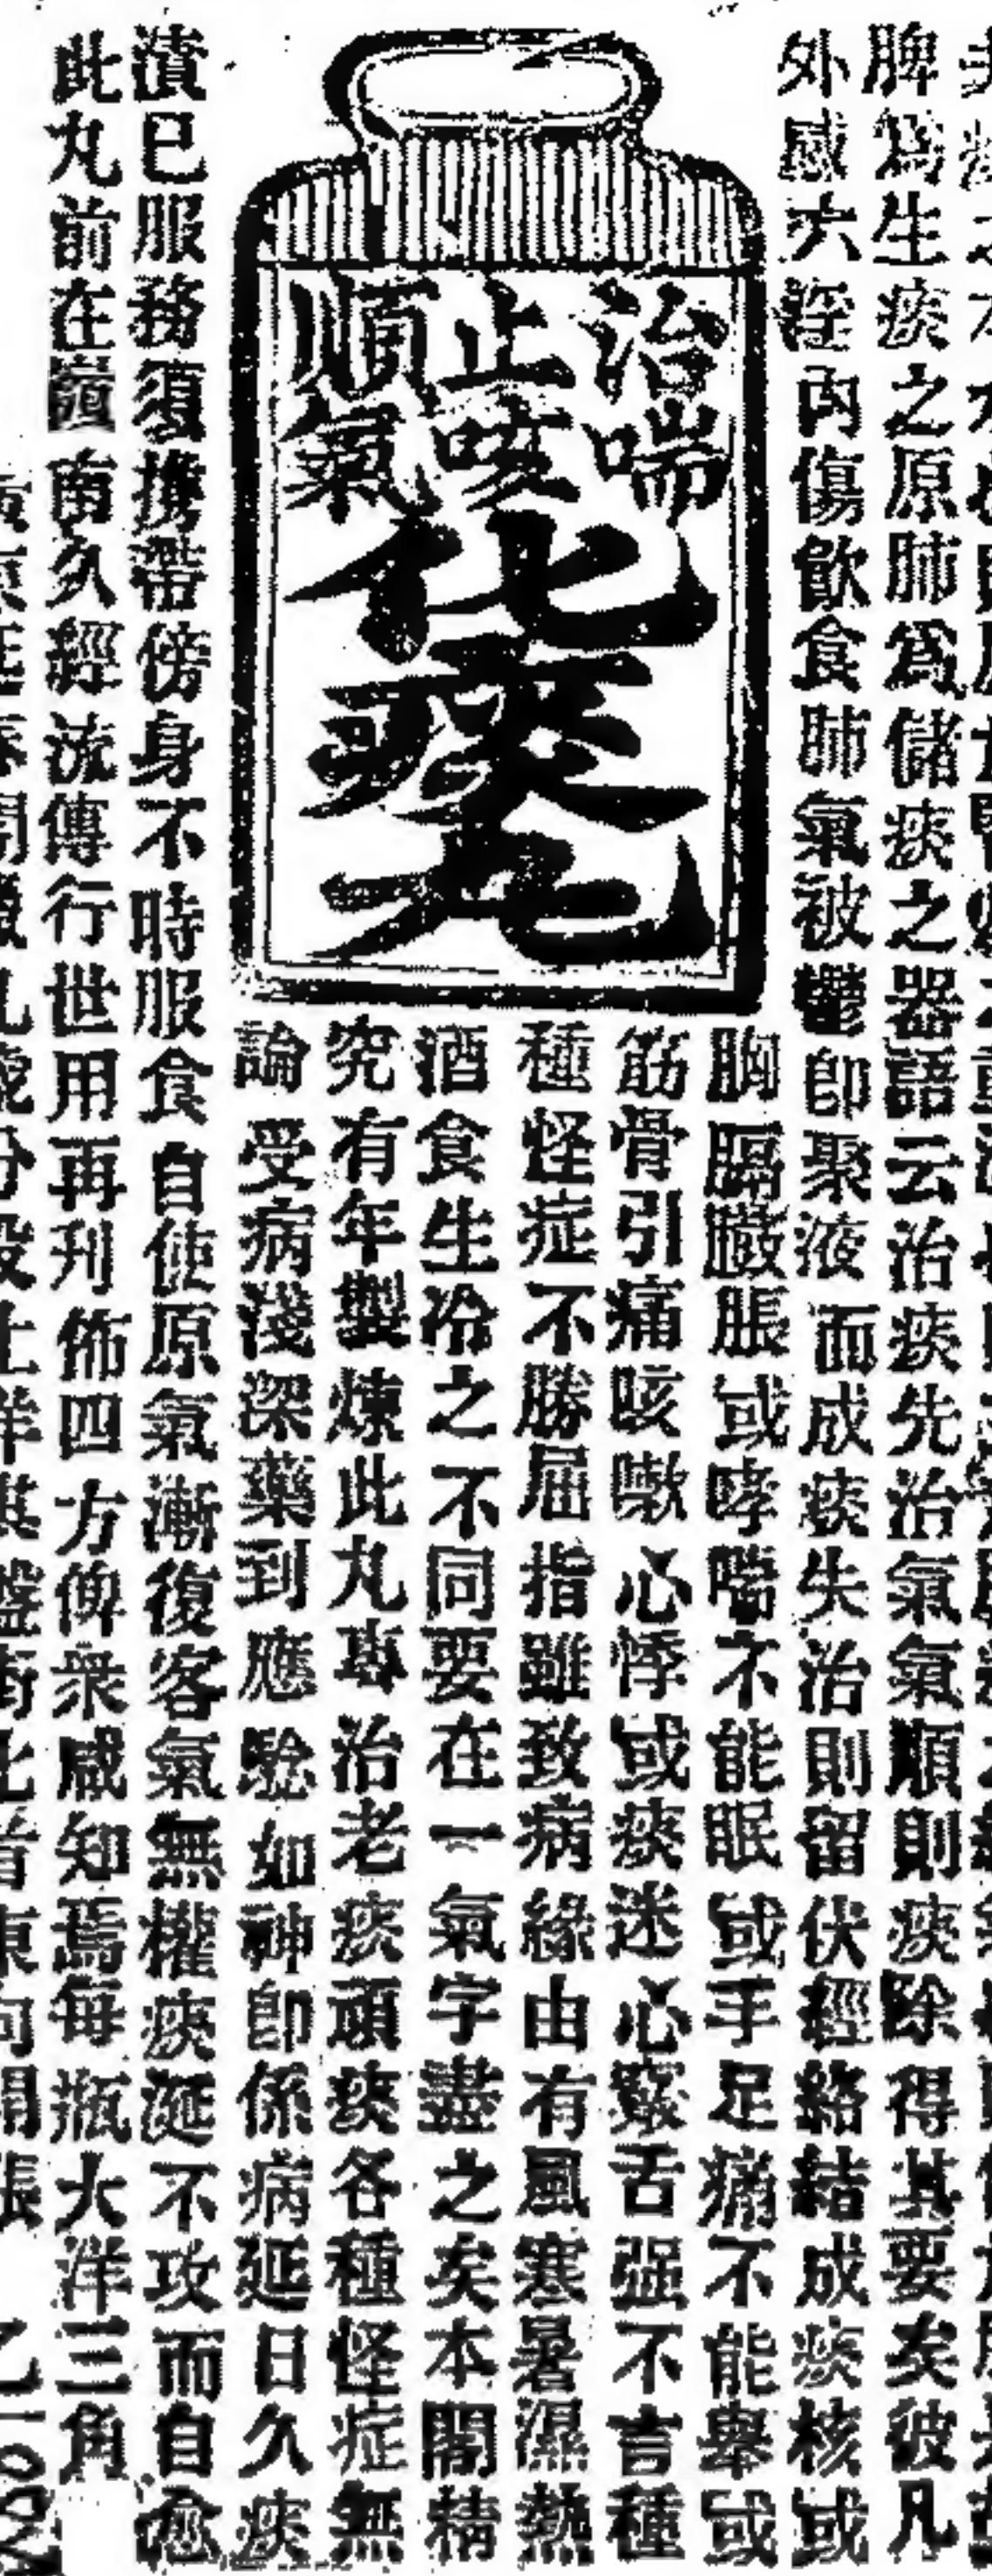 脾爲生痰之原肺爲儲痰之器語云治痰先治氣氣順則痰除得其要矣彼凡
外感六淫內傷飮食肺氣被鬱卽聚液而成痰失治則留伏經絡結成痰核或
胸膈臌脹或哮喘不能眠或手足痛不能舉或
筋骨引痛咳嗽心悸或痰迷心竅舌强不言種
種怪症不勝屈指雖致病緣由有風寒暑濕熱
酒食生冷之不同要在一氣字盡之矣本閣精
究有年製煉此丸專治老痰頑痰各種怪症無
論受病淺深藥到應騐如神卽係病延日久痰
治喘
止咳
順氣
化痰丸
漬已服務須携帶傍身不時服食自使原氣漸復客氣無權痰涎不攻而自愈
此丸前在嶺南久經流傳行世用再刋佈四方俾衆咸知焉每瓶大洋三角